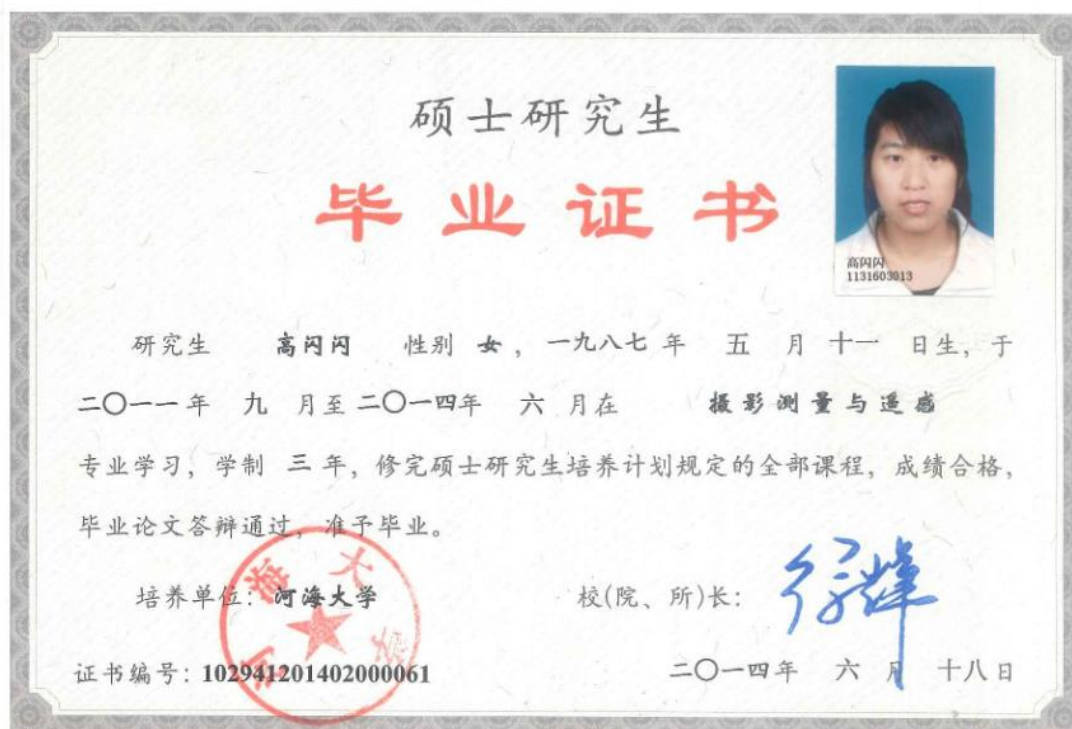 硕士研究生
毕业证书
高闪闪
1131603013
研究生 高闪闪 性别 女，一九八七 年 五 月 十一 日生，于
二〇一一年 九 月至二〇一四年 六 月在 摄影测量与遥感
专业学习，学制 三 年，修完硕士研究生培养计划规定的全部课程，成绩合格，
毕业论文答辩通过，准予毕业。
河海大学
培养单位：河海大学 校(院、所)长：
证书编号：102941201402000061 二〇一四年 六 月 十八日